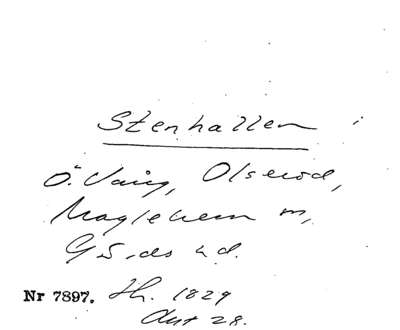 Stenhallen
Ö. Vång, Olseröd,
Maglehem m,
Gärds hd.
Nr 7897. Th. 1829
Ant 28.